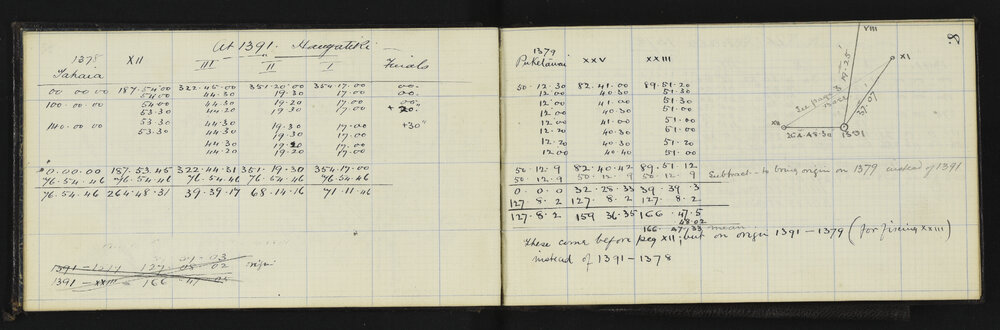 At 1391. Haugatiki
1378 XII III II I Finals
Tahaia
00 00 00 187.54.00 322.45.00 351.20.00 354.17.00 00.
54.00 44.30 19.30 17.00 00.
100.00.00 54.00 44.30 19.20 17.00 00.
53.30 44.30 19.20 17.00 +20"
140.00.00 53.30 44.30 19.30 17.00 +30"
53.30 44.30 19.30 17.00
44.30 19.20 17.00
44.20 19.20 17.00
0.00.00 187.53.45 322.44.31 351.19.30 354.17.00
76.54.46 76.54.46 76.54.46 76.54.46 76.54.46
76.54.46 264.48.31 39.39.17 68.14.16 71.11.46
1391 - 1379 127 08.02 origin
1391 - XXIII = 166
8.
1379
Puketawai XXV XXIII
50.12.30 82.41.00 89.51.20
12.00 40.30 51.30
12.00 41.00 51.30
12.00 40.30 51.00
12.00 41.00 51.00
12.20 40.30 51.00
12.20 40.30 51.00
12.00 40.40 51.00
50.12.9 82.40.42 89.51.12
50.12.9 50.12.9 50.12.9 Subtract - to bring origin on 1379 instead of 1391
0.0.0 32.28.33 39.39.3
127.8.2 127.8.2 127.8.2
127.8.2 159 36.35 166.47.5
48.02
166.47.33 mean.
These come before peg XII, but on origin 1391 - 1379 (for fixing XXIII)
instead of 1391 - 1378
VIII
XI
See page 3
more
19.25
32.07
XII
264.48.30 1391